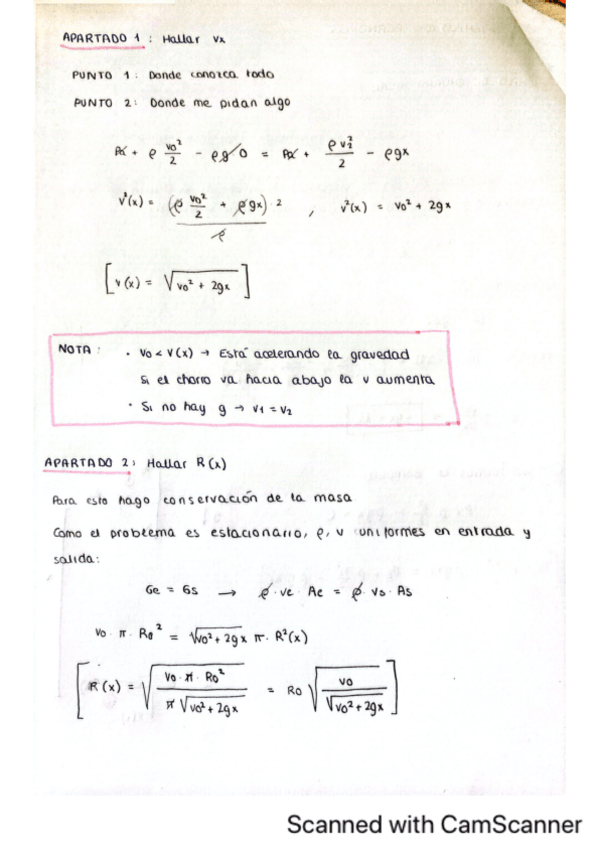 APARTADO 1 : Hallar vx
PUNTO 1 : Donde conozca todo
PUNTO 2 : Donde me pidan algo
Pa + ρ vo²/2 - ρg·0 = Pa + ρ v₂²/2 - ρgx
v²(x) = (ρ vo²/2 + ρgx)·2 / ρ , v²(x) = vo² + 2gx
[v(x) = √(vo² + 2gx)]
NOTA : · vo < v(x) → Está acelerando la gravedad
Si el chorro va hacia abajo la v aumenta
· Si no hay g → v1 = v2
APARTADO 2 : Hallar R(x)
Para esto hago conservación de la masa
Como el problema es estacionario, ρ, v uniformes en entrada y
salida:
Ge = Gs → ρ · ve · Ae = ρ · vs · As
vo · π · Ro² = √(vo² + 2gx) π · R²(x)
[R(x) = √(vo · π · Ro² / π √(vo² + 2gx)) = Ro √(vo / √(vo² + 2gx))]
Scanned with CamScanner